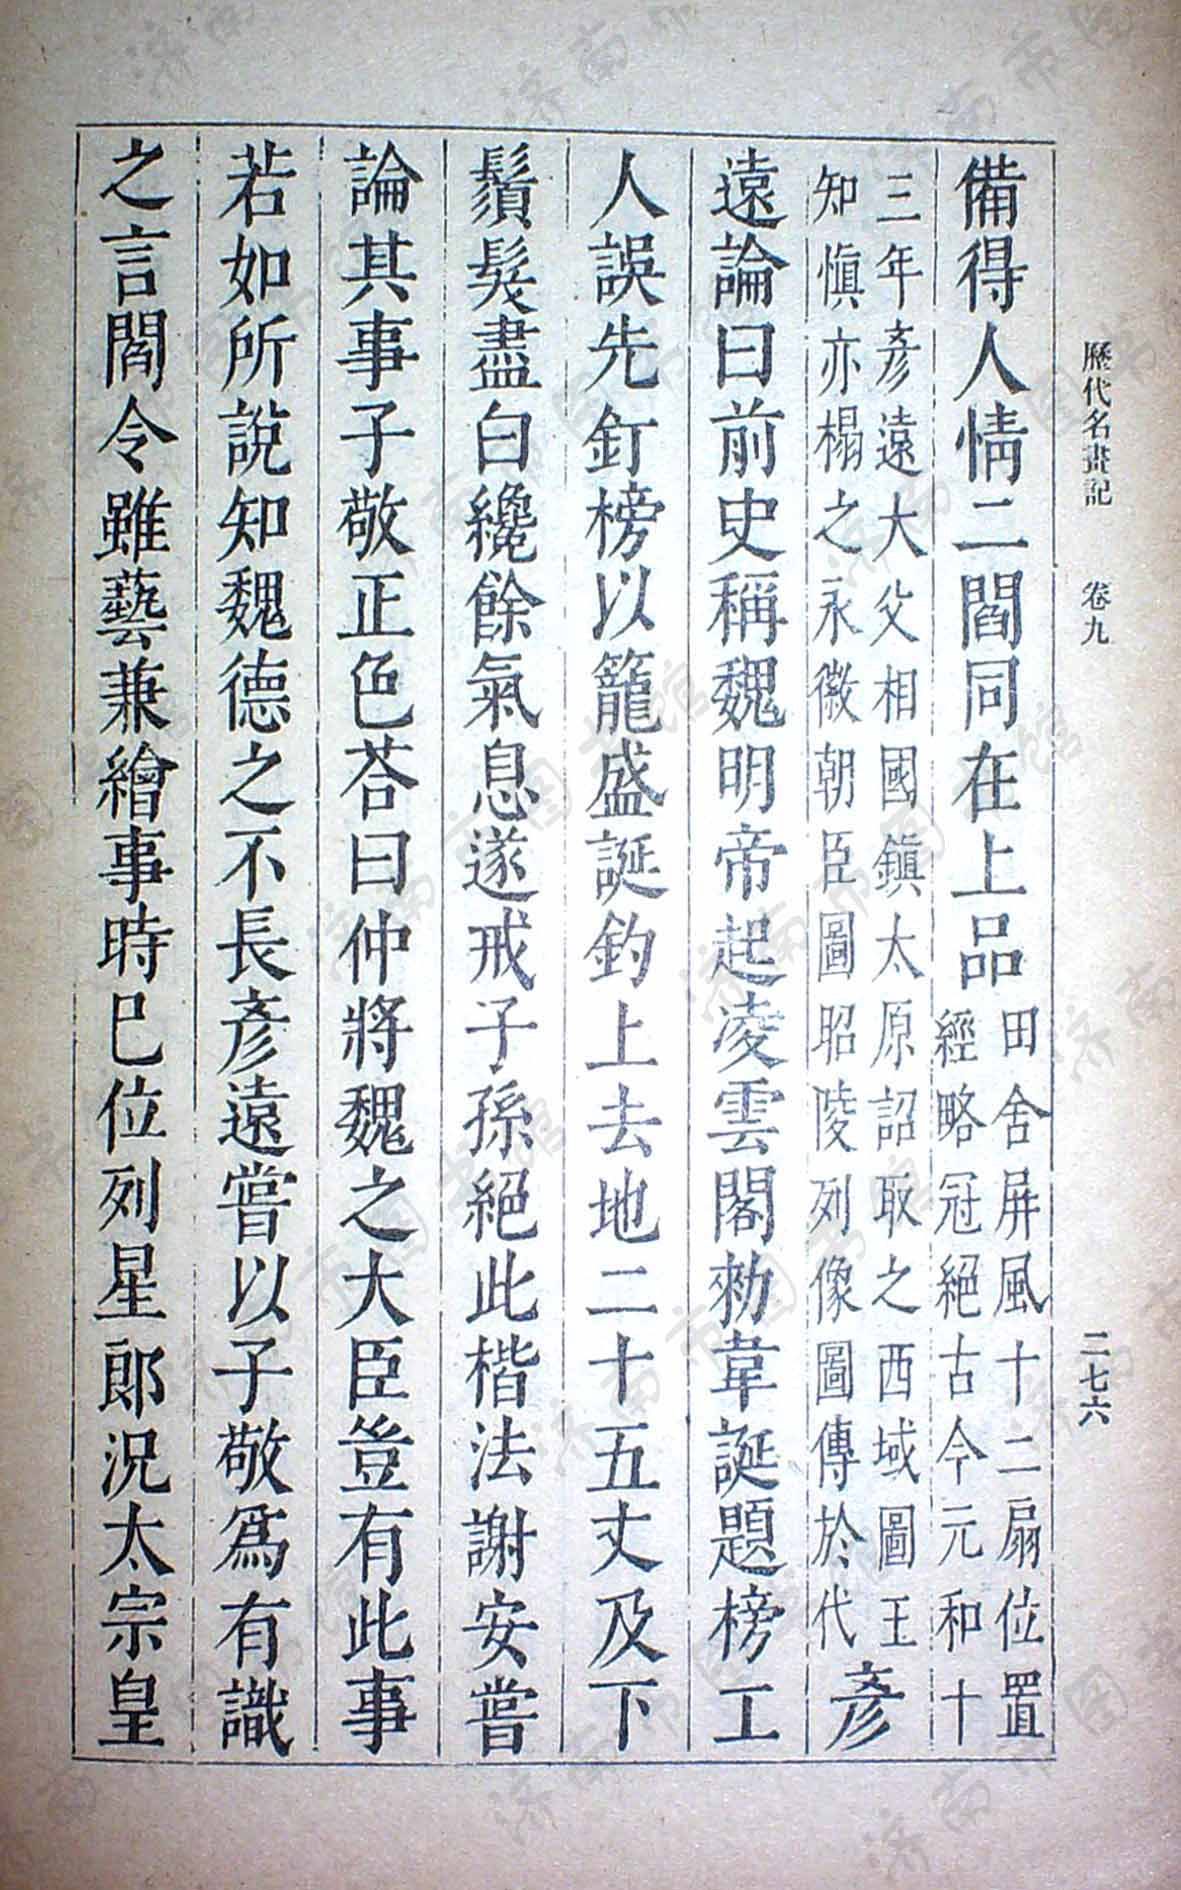 歷代名畫記　卷九　二七六
備得人情二閻同在上品田舍屏風十二扇位置
經略冠絕古今元和十
三年彥遠大父相國鎮太原詔取之西域圖王
知愼亦榻之永徽朝臣圖昭陵列像圖傳於代彥
遠論曰前史稱魏明帝起凌雲閣勑韋誕題榜工
人誤先釘榜以籠盛誕釣上去地二十五丈及下
鬚髮盡白纔餘氣息遂戒子孫絕此楷法謝安嘗
論其事子敬正色荅曰仲將魏之大臣豈有此事
若如所說知魏德之不長彥遠嘗以子敬爲有識
之言閻令雖藝兼繪事時巳位列星郎況太宗皇
济南市图书馆